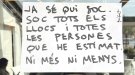 JA SÉ QUI SOC...
SOC TOTS ELS
LLOCS I TOTES
LES PERSONES
QUE HE ESTIMAT.
NI MÉS NI MENYS.